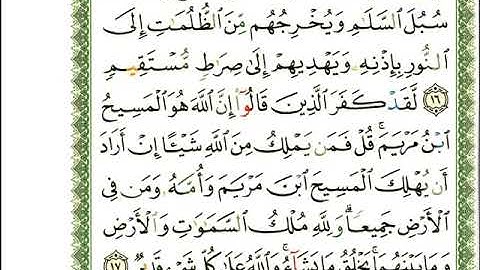 سُبُلَ ٱلسَّلَٰمِ وَيُخْرِجُهُم مِّنَ ٱلظُّلُمَٰتِ إِلَى
ٱلنُّورِ بِإِذْنِهِۦ وَيَهْدِيهِمْ إِلَىٰ صِرَٰطٍ مُّسْتَقِيمٍ
١٦ لَّقَدْ كَفَرَ ٱلَّذِينَ قَالُوٓا۟ إِنَّ ٱللَّهَ هُوَ ٱلْمَسِيحُ
ٱبْنُ مَرْيَمَ ۚ قُلْ فَمَن يَمْلِكُ مِنَ ٱللَّهِ شَيْـًٔا إِنْ أَرَادَ
أَن يُهْلِكَ ٱلْمَسِيحَ ٱبْنَ مَرْيَمَ وَأُمَّهُۥ وَمَن فِى
ٱلْأَرْضِ جَمِيعًا ۗ وَلِلَّهِ مُلْكُ ٱلسَّمَٰوَٰتِ وَٱلْأَرْضِ
وَمَا بَيْنَهُمَا ۚ يَخْلُقُ مَا يَشَآءُ ۚ وَٱللَّهُ عَلَىٰ كُلِّ شَىْءٍ قَدِيرٌ ١٧